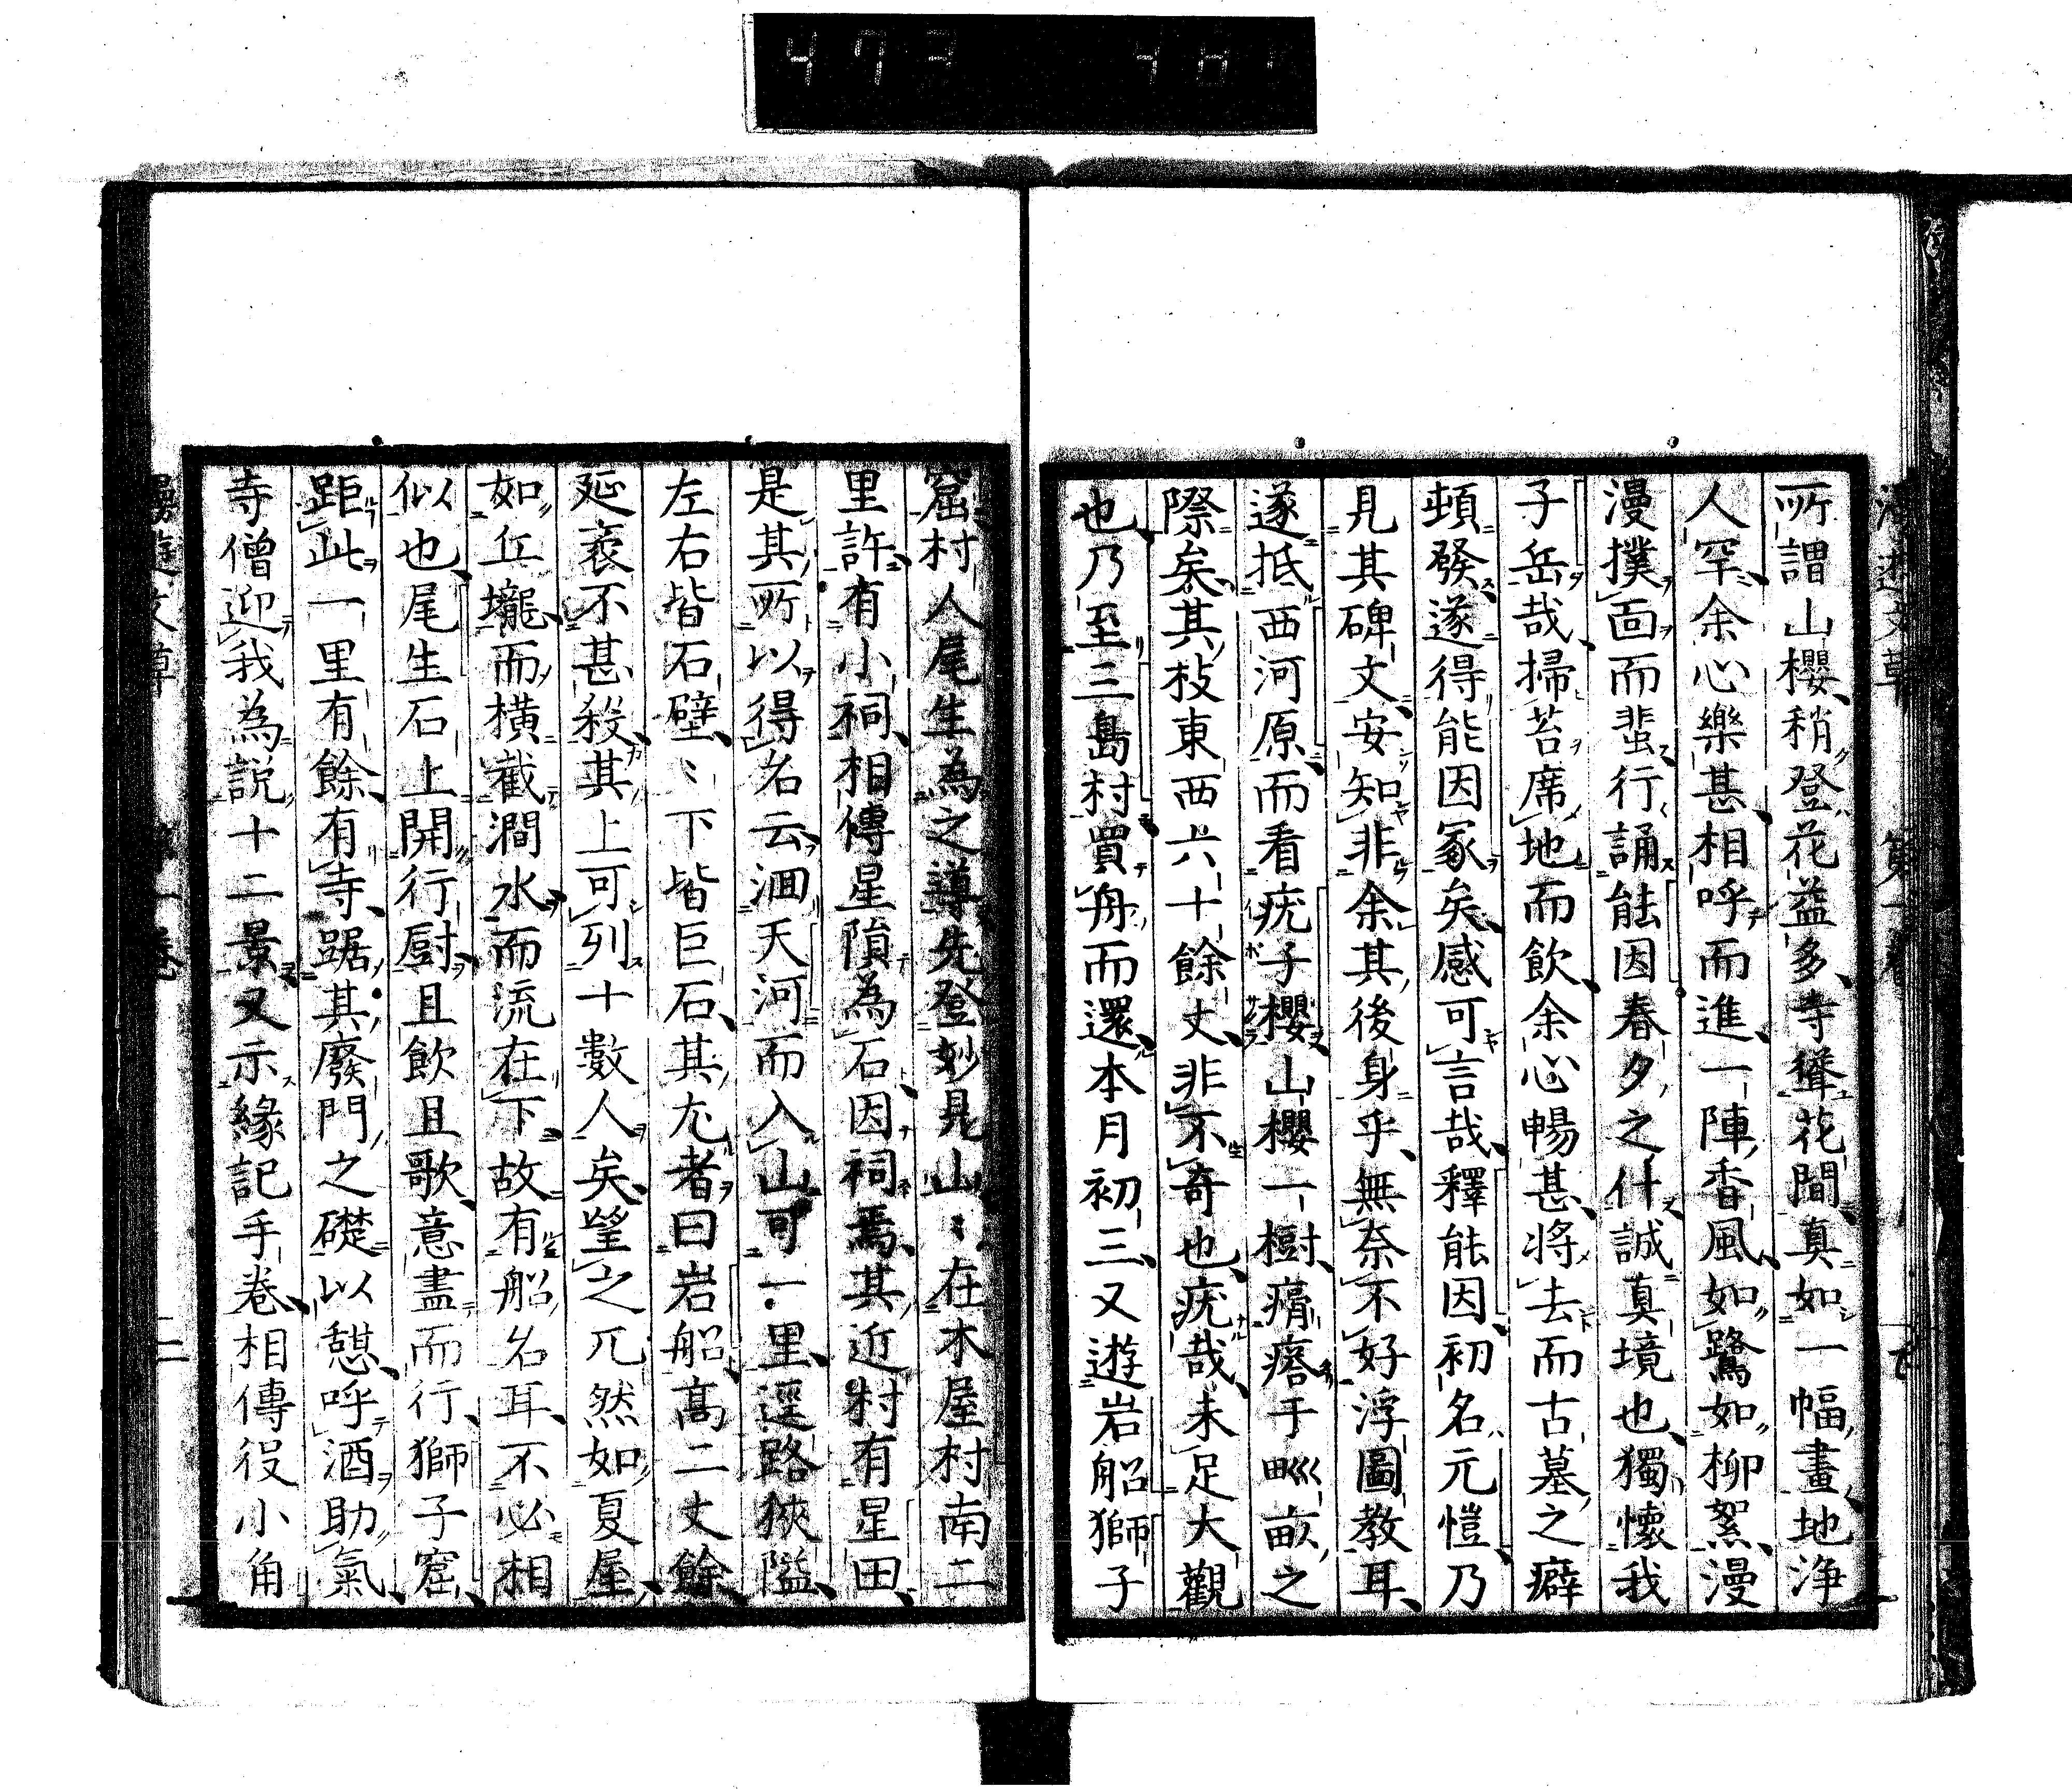 所謂山櫻、稍登花益多、寺聳花間、真如一幅畫、地浄
人罕、余心樂甚、相呼而進、一陣香風、如鷺如柳絮、漫
漫撲面而蜚、行誦能因春夕之什、誠真境也、獨懷我
子岳哉、掃苔席地而飲、余心暢甚、将去而古墓之癖
頓發、遂得能因冢矣、感可言哉、釋能因、初名元愷、乃
見其碑文、安知非余其後身乎、無奈不好浮圖教耳、
遂抵西河原、而看疣子櫻、山櫻一樹、瘠瘩于甽畝之
際矣、其枝東西六十餘丈、非不奇也、疣哉、未足大觀
也、乃至三島村、買舟而還、本月初三、又遊岩船獅子
窟村人尾生為之導先登妙見山〻在木屋村南二
里許、有小祠、相傳星隕為石、因祠焉、其近村有星田、
是其所以得名云、洄天河而入山可一里、逕路狹隘、
左右皆石壁、〻下皆巨石、其尤者曰岩船、高二丈餘、
延袤不甚殺、其上可列十數人矣、望之兀然如夏屋、
如丘壠、而橫截澗水、而流在下、故有船名耳、不必相
似也、尾生石上開行厨、且飲且歌、意盡而行、獅子窟、
距此一里有餘、有寺、踞其廢門之礎以憩、呼酒助氣、
寺僧迎我為説十二景、又示緣記手卷、相傳役小角
漫遊文草 第一卷 二